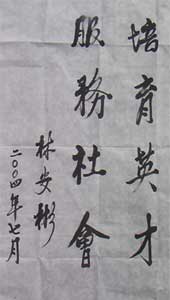 培育英才
服務社會
林安彬
二〇〇四年七月